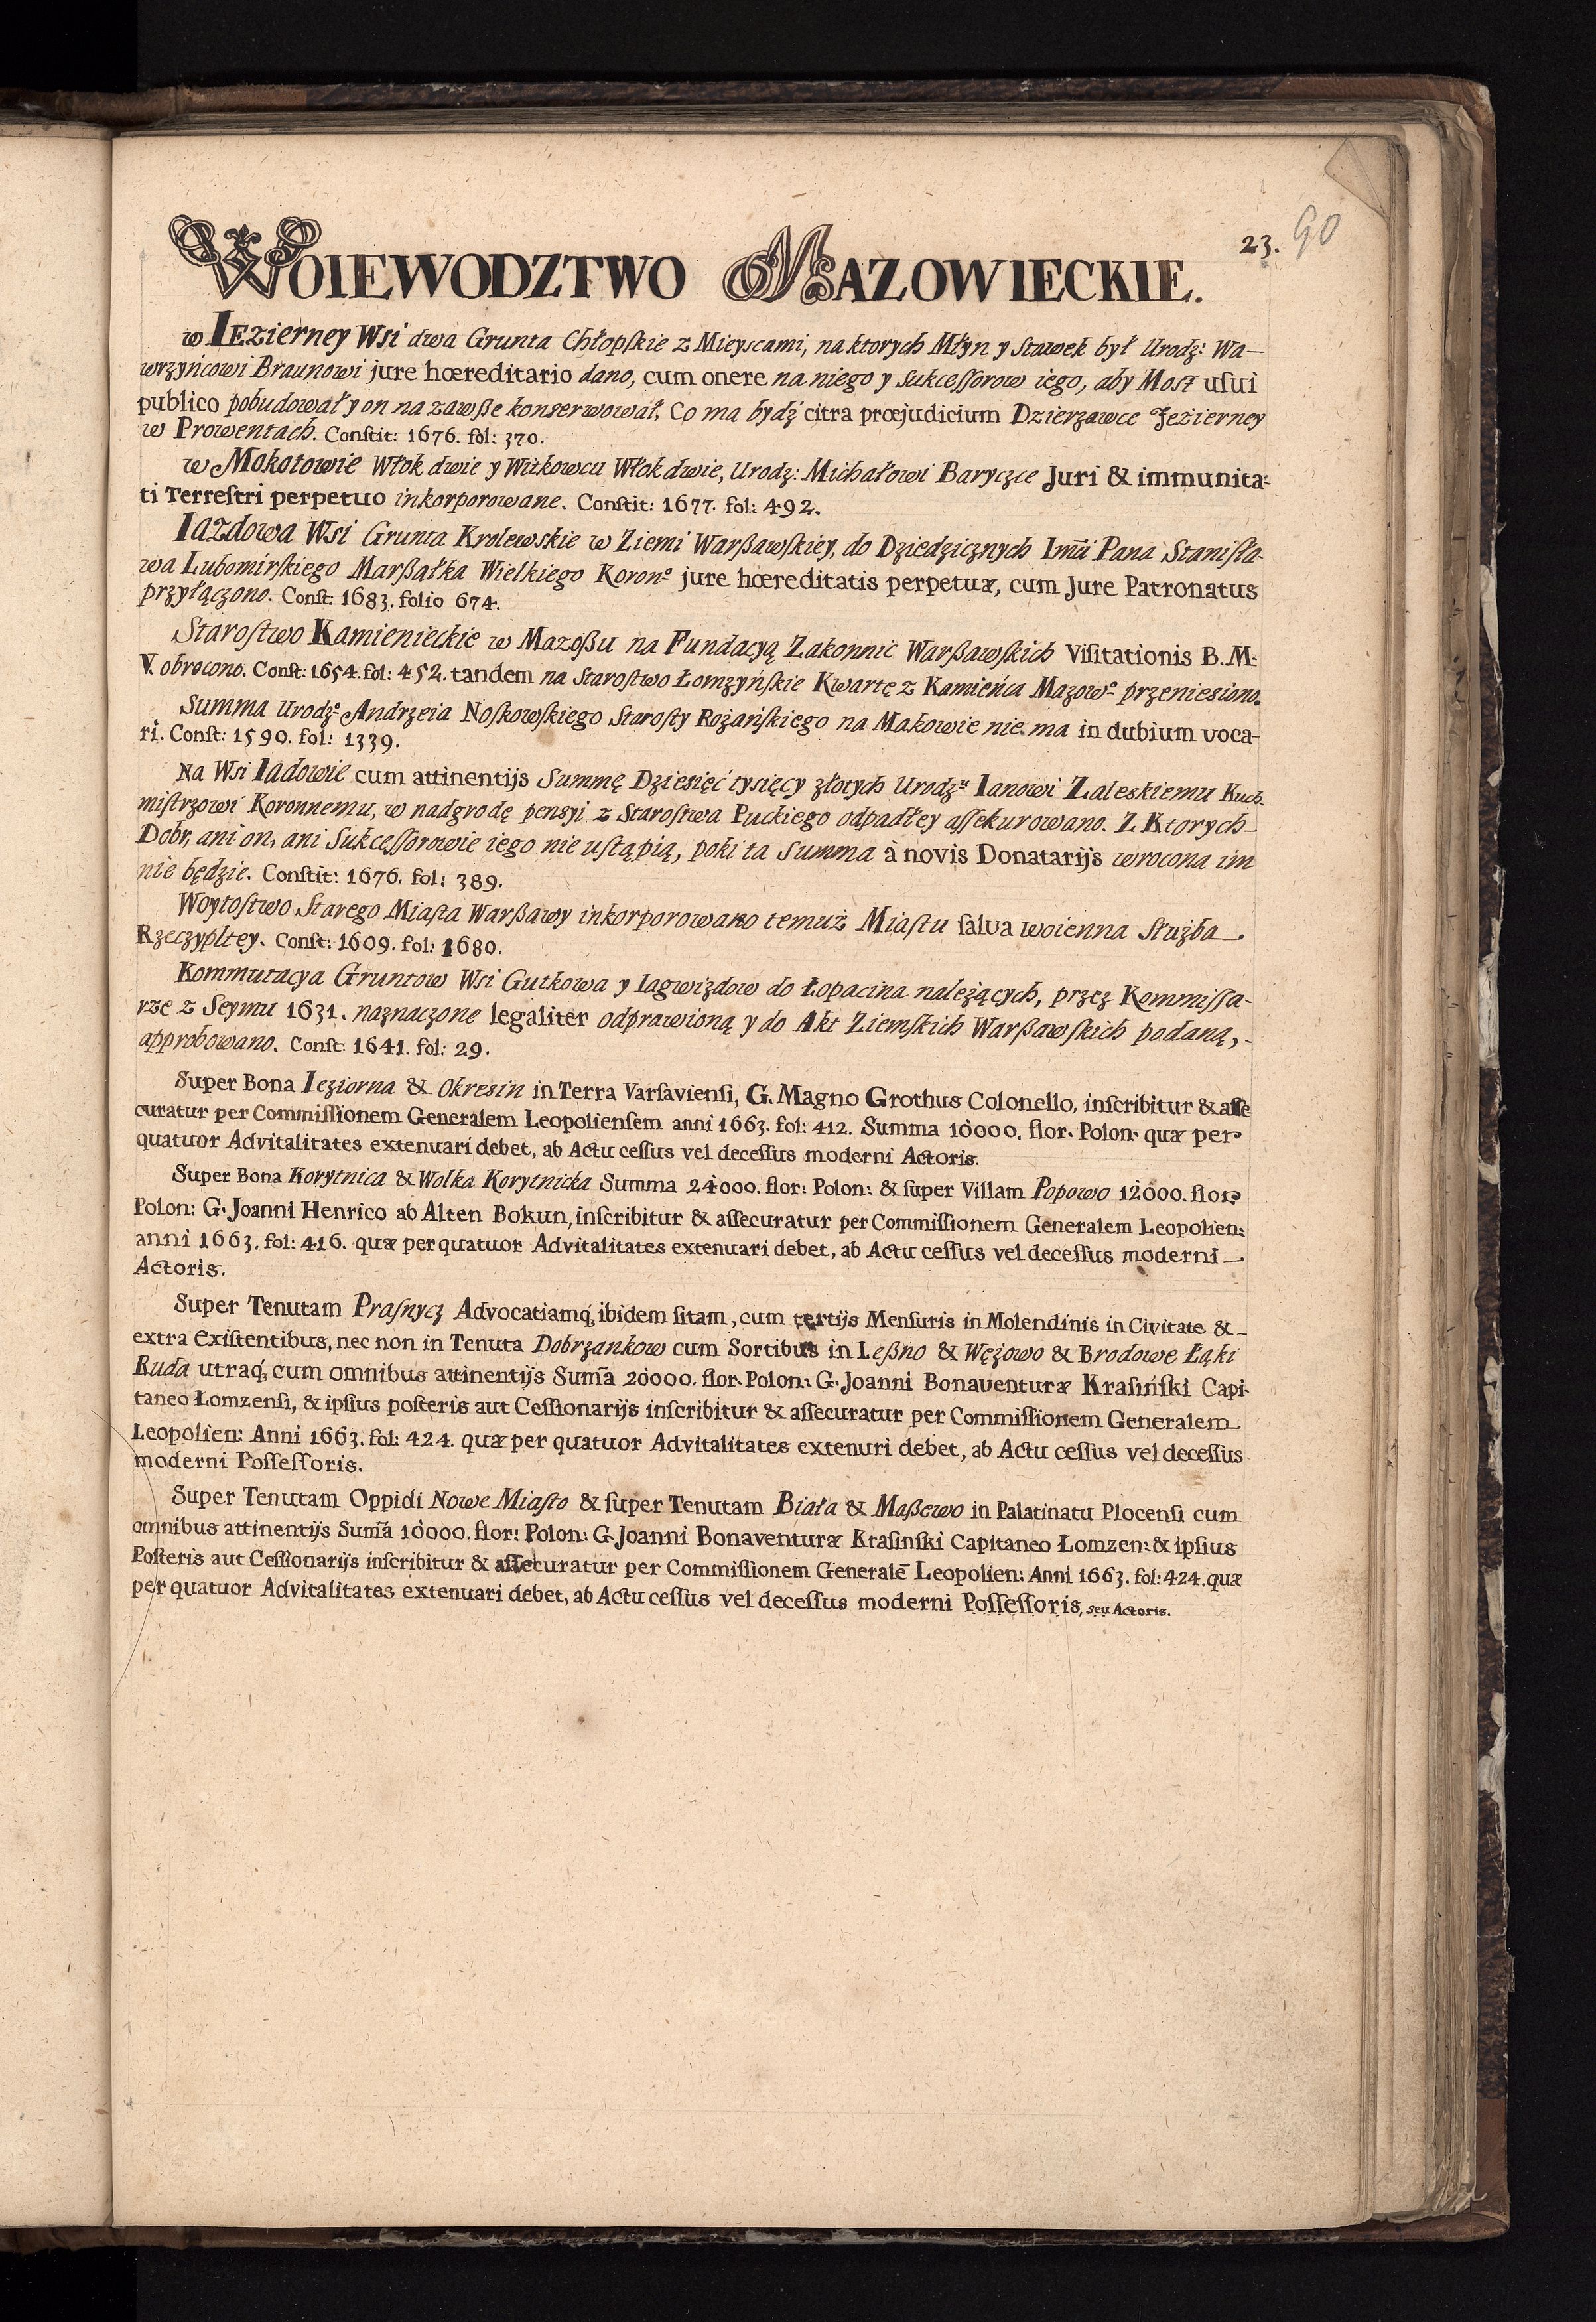 23. 90
WOIEWODZTWO MAZOWIECKIE.
w IEzierney Wsi dwa Grunta Chłopſkie z Mieyscami, na ktorych Młyn y Stawek był Urodz: Wa–
wrzyńcowi Braunowi jure hœreditario dano, cum onere na niego y Sukceſſorow iego, aby Most uſui
publico pobudował y on na zawße konserwował. Co ma bydź citra prœjudicium Dzierzawce Jezierney
w Prowentach. Conſtit: 1676. fol: 370.
w Mokotowie Włok dwie y Witkowcu Włok dwie, Urodz: Michałowi Baryczce Juri & immunita-
ti Terreſtri perpetuo inkorporowane. Conſtit: 1677. fol: 492.
Iazdowa Wsi Grunta Krolewskie w Ziemi Warßawſkiey, do Dziedzicznych Im̃i Pana Staniſła-
wa Lubomirſkiego Marßałka Wielkiego Koron.º jure hœreditatis perpetuæ, cum Jure Patronatus
przyłączono. Conſt: 1683. folio 674.
Staroſtwo Kamienieckie w Mazoßu na Fundacyą Zakonnic Warßawſkich Viſitationis B. M.
V. obrocono. Conſt: 1654. fol: 452. tandem na Staroſtwo Łomzyńſkie Kwartę z Kamieńca Mazow.º przeniesiono.
Summa Urodz.º Andrzeia Noſkowſkiego Staroſty Rożańſkiego na Makowie nie ma in dubium voca-
ri. Conſt: 1590. fol: 1339.
Na Wsi Iadowie cum attinentijs Summę Dziesięć tysięcy złotych Urodz.u Ianowi Zaleskiemu Kuch-
miſtrzowi Koronnemu, w nadgrodę pensyi z Staroſtwa Puckiego odpadłey aſſekurowano. Z Ktorych–
Dobr, ani on, ani Sukceſſorowie iego nie uſtąpią, poki ta Summa à novis Donatarijs wrocona im
nie będzie. Conſtit: 1676. fol: 389.
Woytoſtwo Starego Miaſta Warßawy inkorporowano temuż Miaſtu ſalva woienna Służba
Rzeczypltey. Conſt: 1609. fol: 1680.
Kommutacya Gruntow Wsi Gutkowa y Iagwizdow do Łopacina należących, przez Kommiſſa-
rze z Seymu 1631. naznaczone legaliter odprawioną y do Akt Ziemſkich Warßawſkich podaną,-
approbowano. Conſt: 1641. fol: 29.
Super Bona Ieziorna & Okresin in Terra Varſavienſi, G. Magno Grothus Colonello, inſcribitur & aſſe
curatur per Commiſſionem Generalem Leopolienſem anni 1663. fol: 412. Summa 10000. flor. Polon: quæ per
quatuor Advitalitates extenuari debet, ab Actu ceſſus vel deceſſus moderni Actoris.
Super Bona Korytnica & Wolka Korytnicka Summa 24000. flor: Polon: & ſuper Villam Popowo 12000. flor:
Polon: G. Joanni Henrico ab Alten Bokun, inſcribitur & aſſecuratur per Commiſſionem Generalem Leopolien:
anni 1663. fol: 416. quæ per quatuor Advitalitates extenuari debet, ab Actu ceſſus vel deceſſus moderni –
Actoris.
Super Tenutam Praſnycz Advocatiamq́; ibidem ſitam, cum tertijs Menſuris in Molendinis in Civitate & –
extra Exiſtentibus, nec non in Tenuta Dobrzankow cum Sortibus in Leßno & Wężowo & Brodowe Łąki
Ruda utraq́; cum omnibus attinentijs Sum̃a 20000. flor. Polon: G. Joanni Bonaventuræ Kraſińſki Capi-
taneo Łomzenſi, & ipſius poſteris aut Ceſſionarijs inſcribitur & aſſecuratur per Commiſſionem Generalem
Leopolien: Anni 1663. fol: 424. quæ per quatuor Advitalitates extenuri debet, ab Actu ceſſus vel deceſſus
moderni Poſſeſſoris.
Super Tenutam Oppidi Nowe Miaſto & ſuper Tenutam Biała & Maßewo in Palatinatu Plocenſi cum
omnibus attinentijs Sum̃a 10000. flor: Polon: G. Joanni Bonaventuræ Kraſinſki Capitaneo Łomzen: & ipſius
Poſteris aut Ceſſionarijs inſcribitur & aſſecuratur per Commiſſionem Generalē Leopolien: Anni 1663. fol: 424. quæ
per quatuor Advitalitates extenuari debet, ab Actu ceſſus vel deceſſus moderni Poſſeſſoris, seu Actoris.